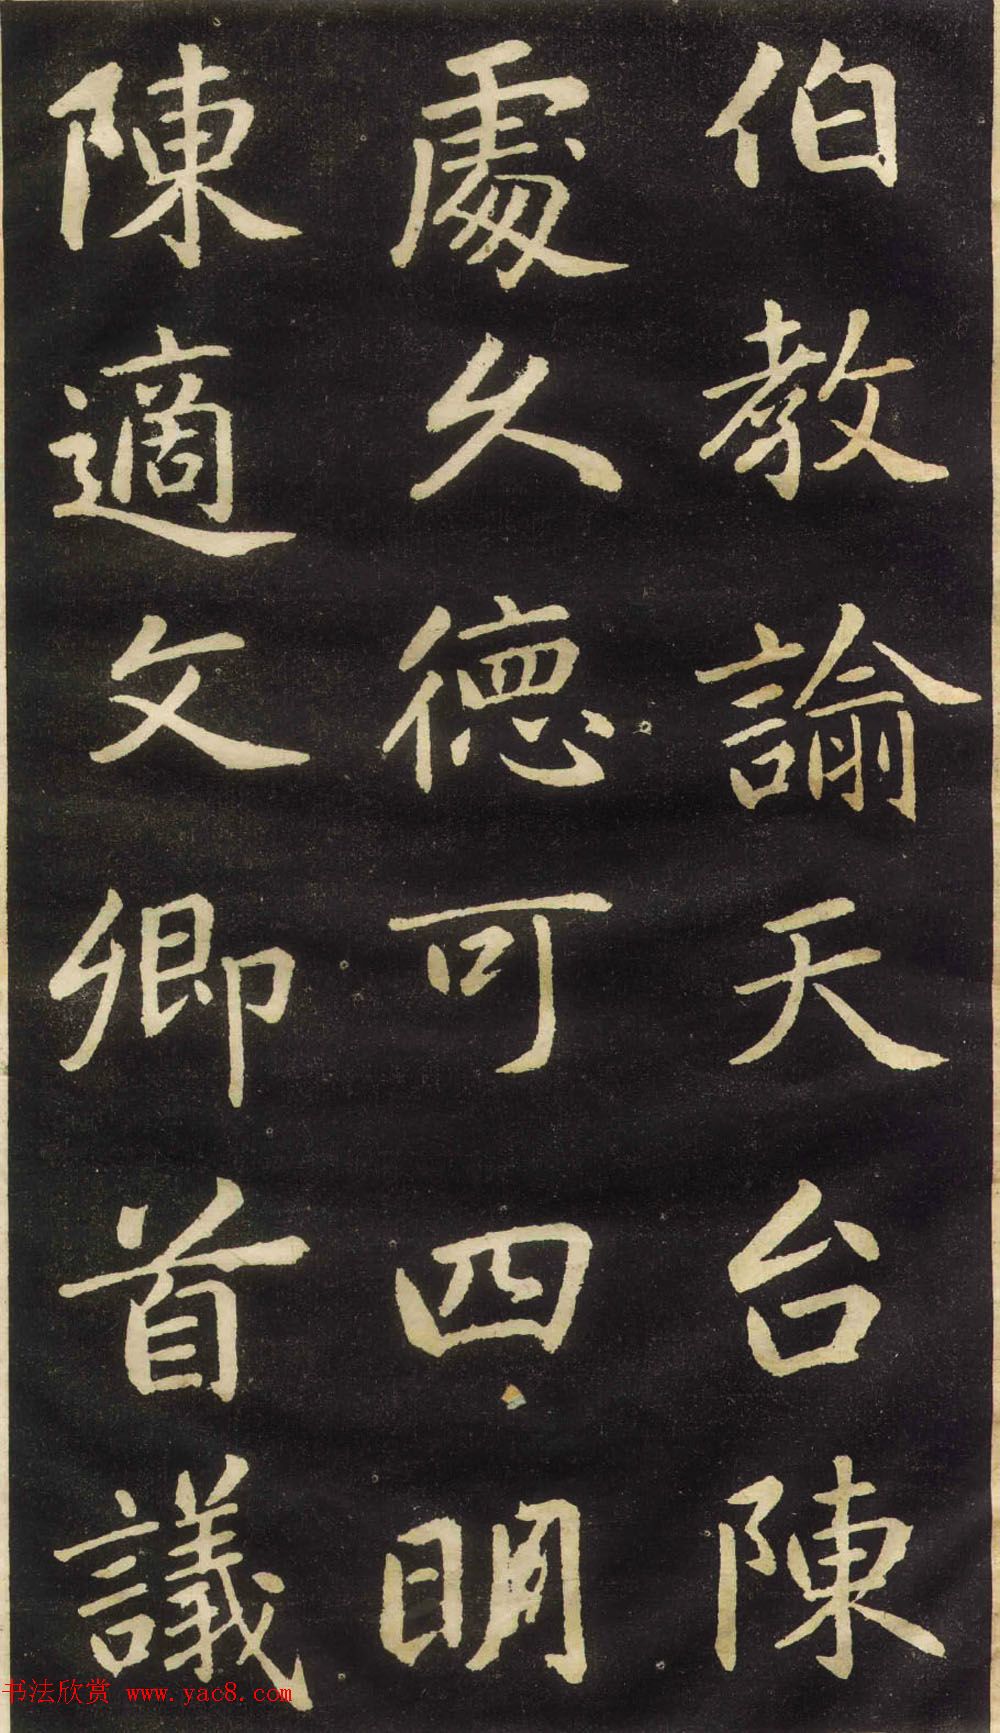 伯教諭天台陳
處久德可四明
陳適文卿首議
书法欣赏 www.yac8.com